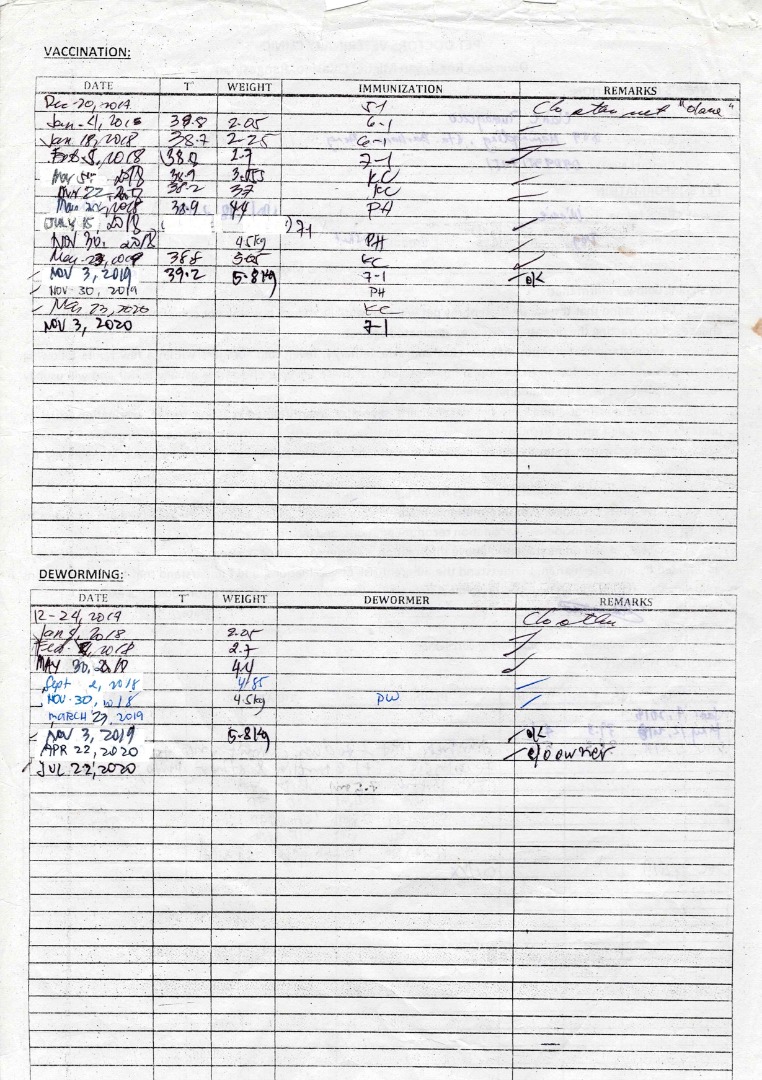 VACCINATION:
DATE T° WEIGHT IMMUNIZATION REMARKS
Dec-20, 2017 5-1 "done"
Jan-4, 2018 38.8 2.05 6-1
Jan 18, 2018 38.7 2-25 6-1
Feb 5, 2018 38.9 2.7 7-1
38.9 KC
38.2 KC
38.9 4.4 PH
JULY 15, 2018 7-1
NOV 30, 2018 4.5kg PH
May 23, 2019 38.8 KC
NOV 3, 2019 39.2 5.8kg 7-1 ok
NOV-30, 2019 PH
May 23, 2020 KC
NOV 3, 2020 7-1
DEWORMING:
DATE T° WEIGHT DEWORMER REMARKS
Jan 4, 2018 2.05
2018 2.7
MAY 30, 2018 4.4
Sept 2, 2018 4.85
NOV-30, 2018 4.5kg DW
MARCH 2019
NOV 3, 2019 5.8kg ok
APR 22, 2020 c/o owner
JUL 22, 2020